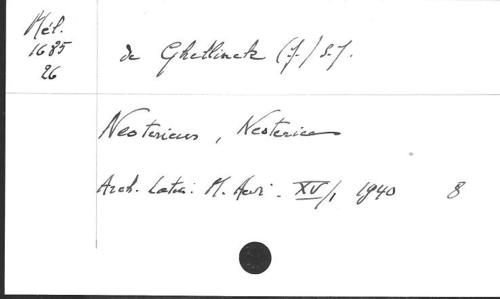 Mél.
1685
26
de Ghellinck (J.) S.J.
Neotericus, Neoterice
Arch. Latin. M. Aevi. XV/1 1940 8